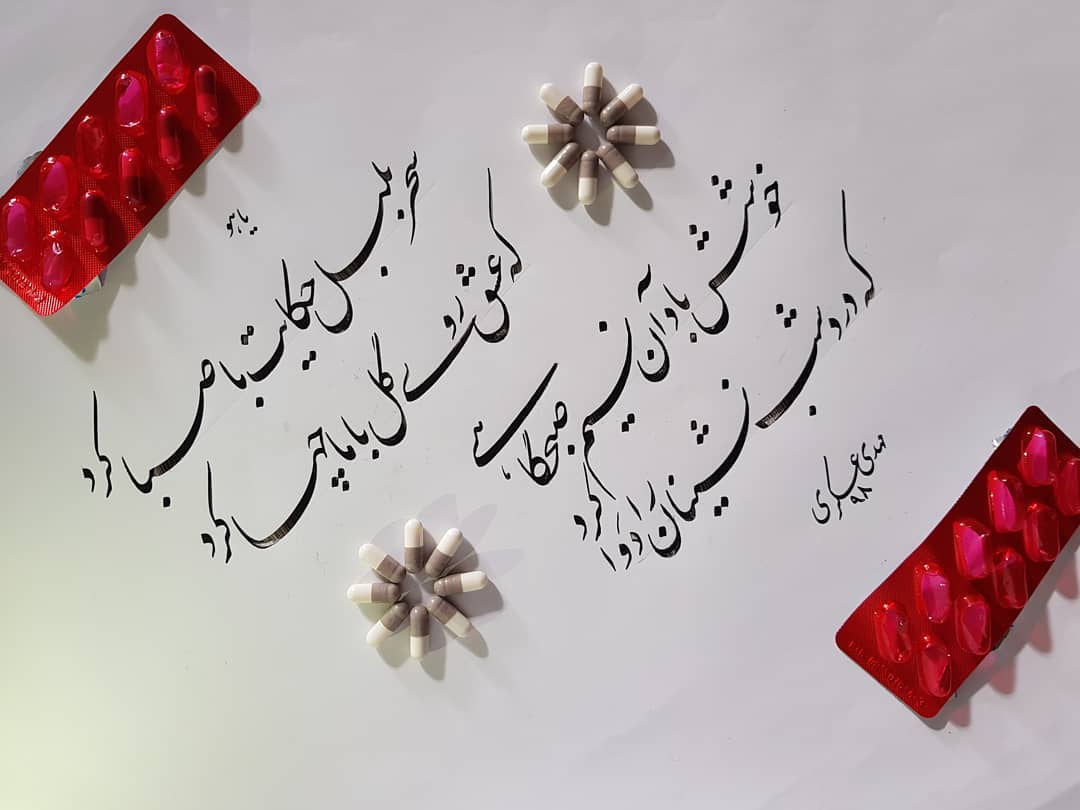 یا هو
سحر بلبل حکایت با صبا کرد
که عشق روی گل با ما چها کرد
خوشش باد آن نسیم صبحگاهی
که درد شب نشینان را دوا کرد
مهدی عسکری
۹۸